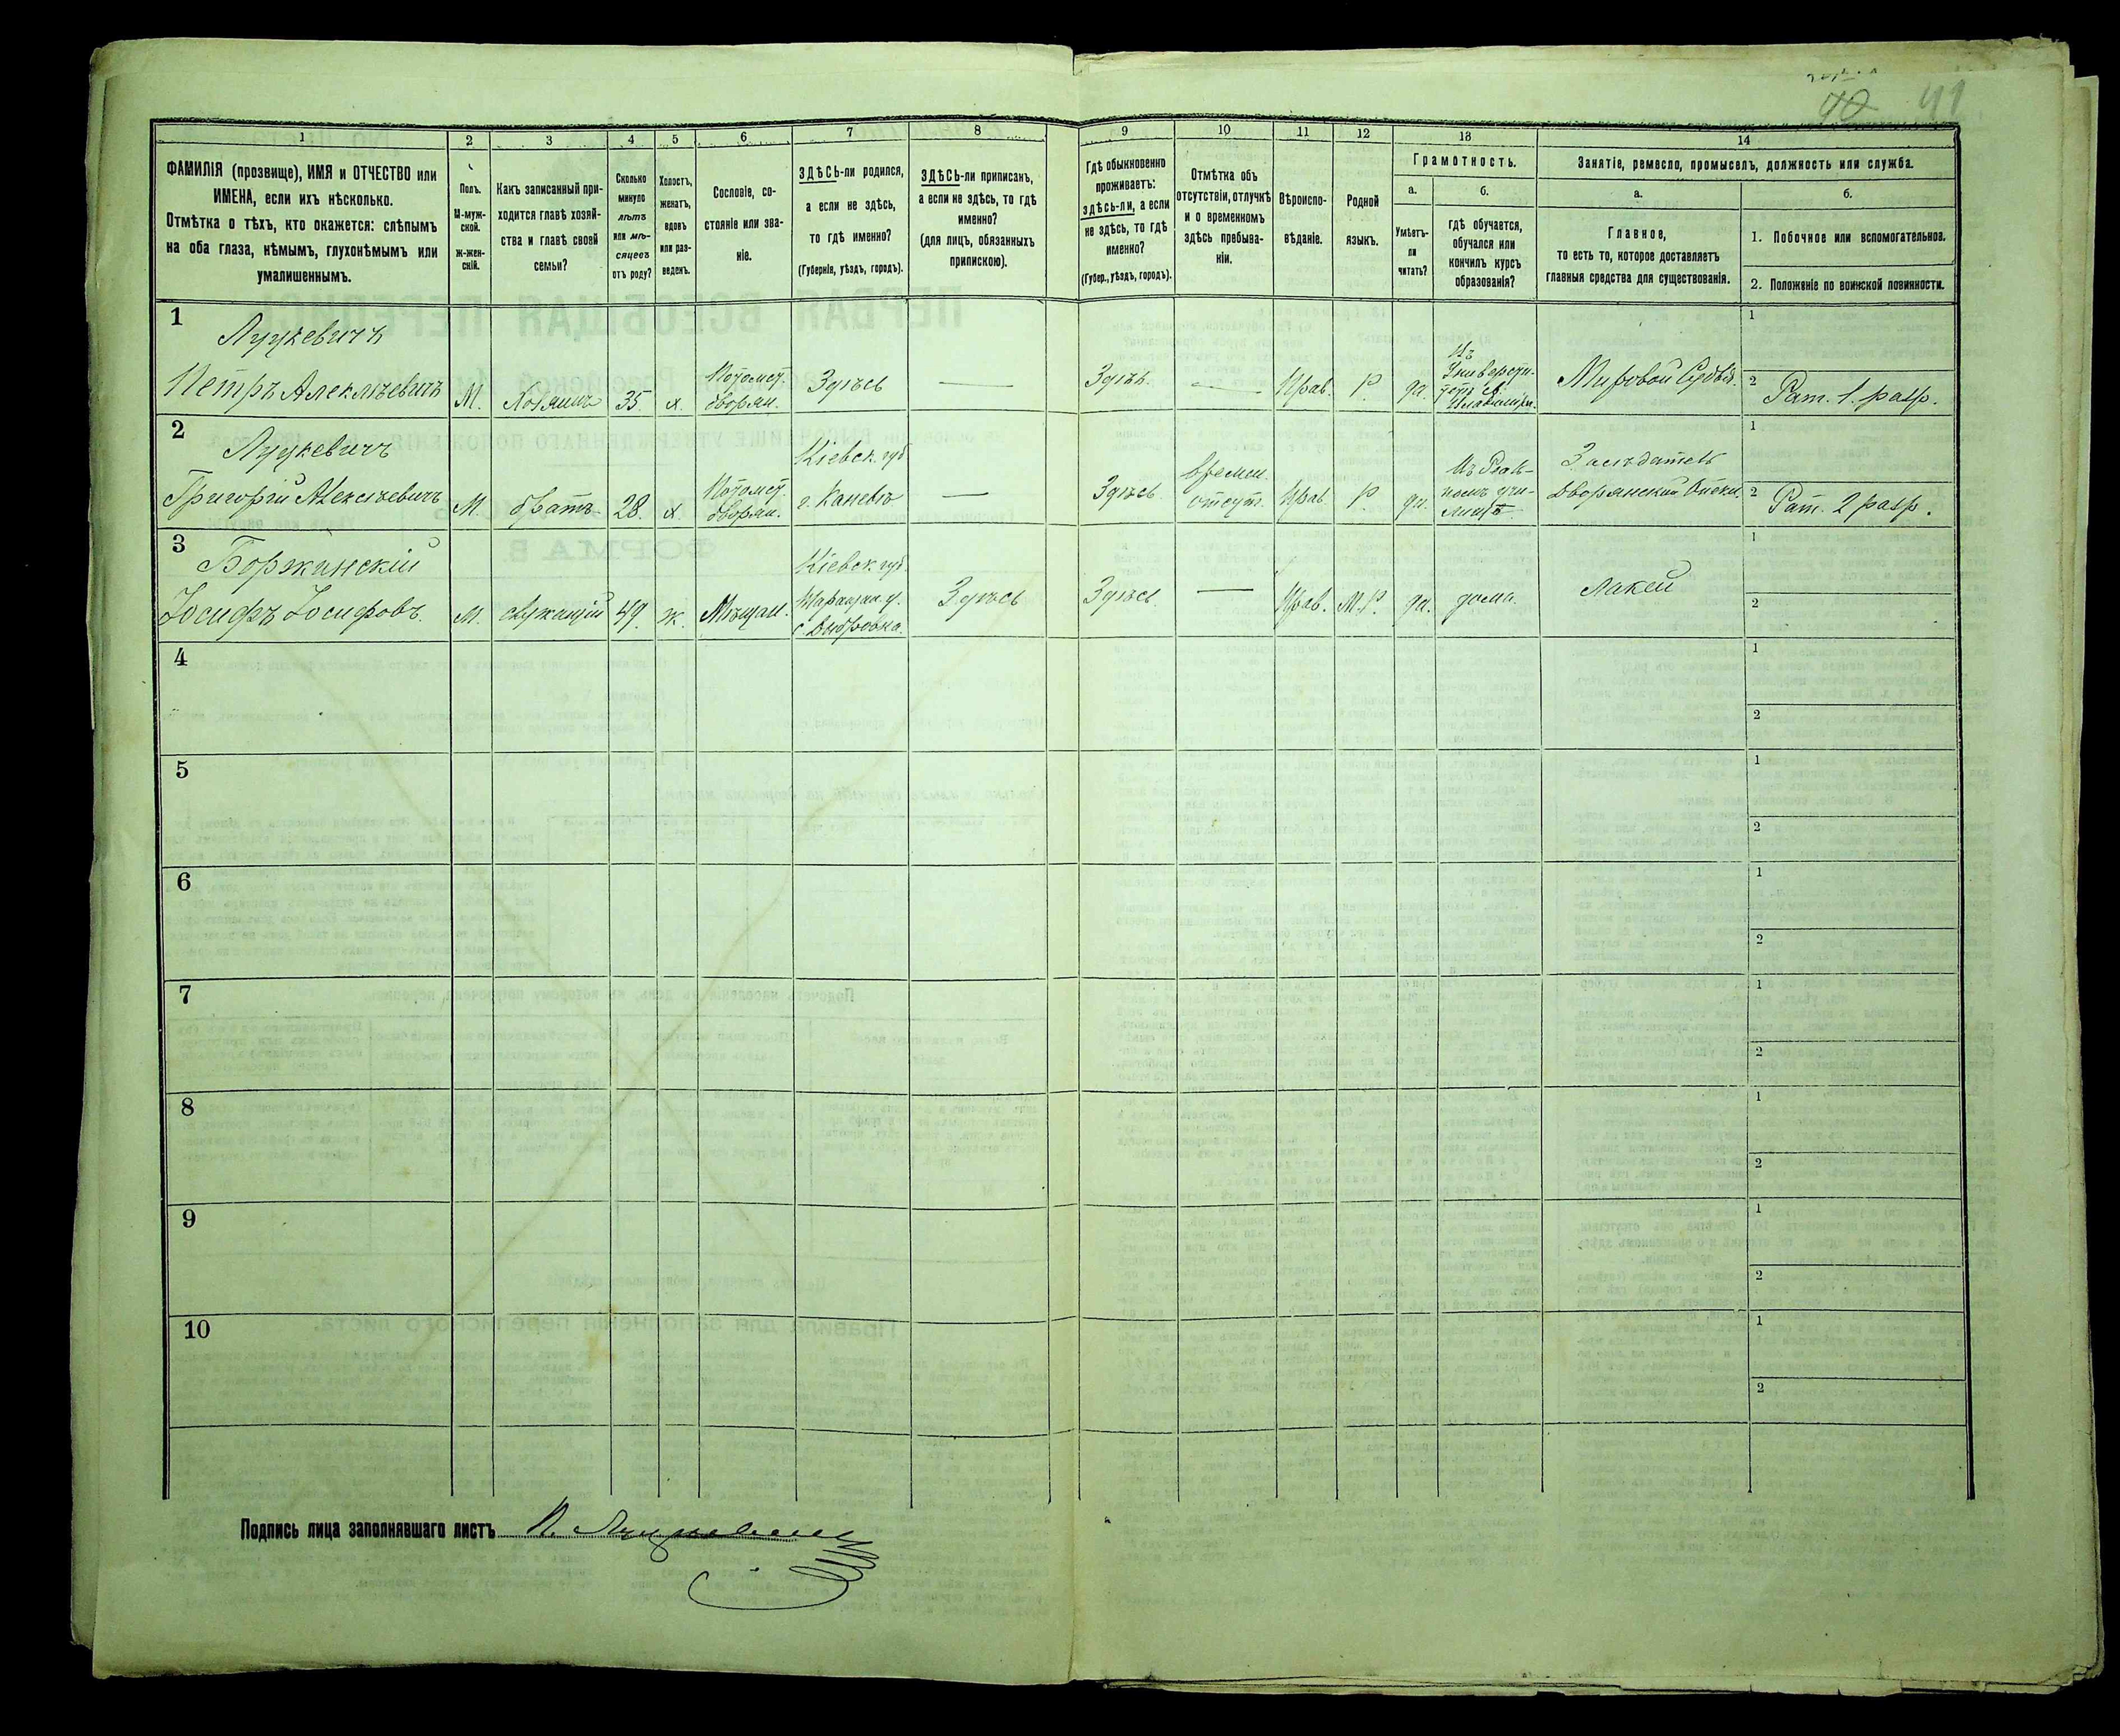 40 41
1 2 3 4 5 6 7 8 9 10 11 12 13 14
ФАМИЛІЯ (прозвище), ИМЯ и ОТЧЕСТВО или
ИМЕНА, если ихъ нѣсколько.
Отмѣтка о тѣхъ, кто окажется: слѣпымъ
на оба глаза, нѣмымъ, глухонѣмымъ или
умалишеннымъ.
Полъ.
М-муж-
ской.
Ж-жен-
скій.
Какъ записанный при-
ходится главѣ хозяй-
ства и главѣ своей
семьи?
Сколько
минуло
лѣтъ
или мѣ-
сяцевъ
отъ роду?
Холостъ,
женатъ,
вдовъ
или раз-
веденъ.
Сословіе, со-
стояніе или зва-
ніе.
ЗДѢСЬ-ли родился,
а если не здѣсь,
то гдѣ именно?
(Губернія, уѣздъ, городъ).
ЗДѢСЬ-ли приписанъ,
а если не здѣсь, то гдѣ
именно?
(для лицъ, обязанныхъ
припискою).
Гдѣ обыкновенно
проживаетъ:
здѣсь-ли, а если
не здѣсь, то гдѣ
именно?
(Губер., уѣздъ, городъ).
Отмѣтка объ
отсутствіи, отлучкѣ
и о временномъ
здѣсь пребыва-
ніи.
Вѣроиспо-
вѣданіе.
Родной
языкъ.
Грамотность.
а.
Умѣетъ-
ли
читать?
б.
гдѣ обучается,
обучался или
кончилъ курсъ
образованія?
Занятіе, ремесло, промыселъ, должность или служба.
а.
Главное,
то есть то, которое доставляетъ
главныя средства для существованія.
б.
1. Побочное или вспомогательное.
2. Положеніе по воинской повинности.
1
Луцкевичъ
Петръ Алексѣевичъ
М.
Хозяинъ
35.
х.
Потомст.
дворян.
Здѣсь
—
Здѣсь.
—
Прав.
Р.
да.
Въ
Универси-
тетѣ
Мировой Судья.
1
2 Рат. 1. разр.
2
Луцкевичъ
Григорій Алексѣевичъ
М.
братъ
28.
х.
Потомст.
дворян.
Кіевск. губ
г. Каневъ
—
Здѣсь
времен.
отсут.
Прав
Р.
да.
Въ Реаль-
номъ учи-
лищѣ
Засѣдатель
Дворянской Опеки.
1
2 Рат. 2 разр.
3
Боржинскій
Іосифъ Іосифовъ.
М.
служащій
49.
ж.
Мѣщан.
Кіевск. губ.
Таращан. у.
Здѣсь
Здѣсь
—
Прав.
М.Р.
да.
дома.
Лакей
1
2
4
1
2
5
1
2
6
1
2
7
1
2
8
1
2
9
1
2
10
1
2
Подпись лица заполнявшаго листъ П. Луцкевичъ